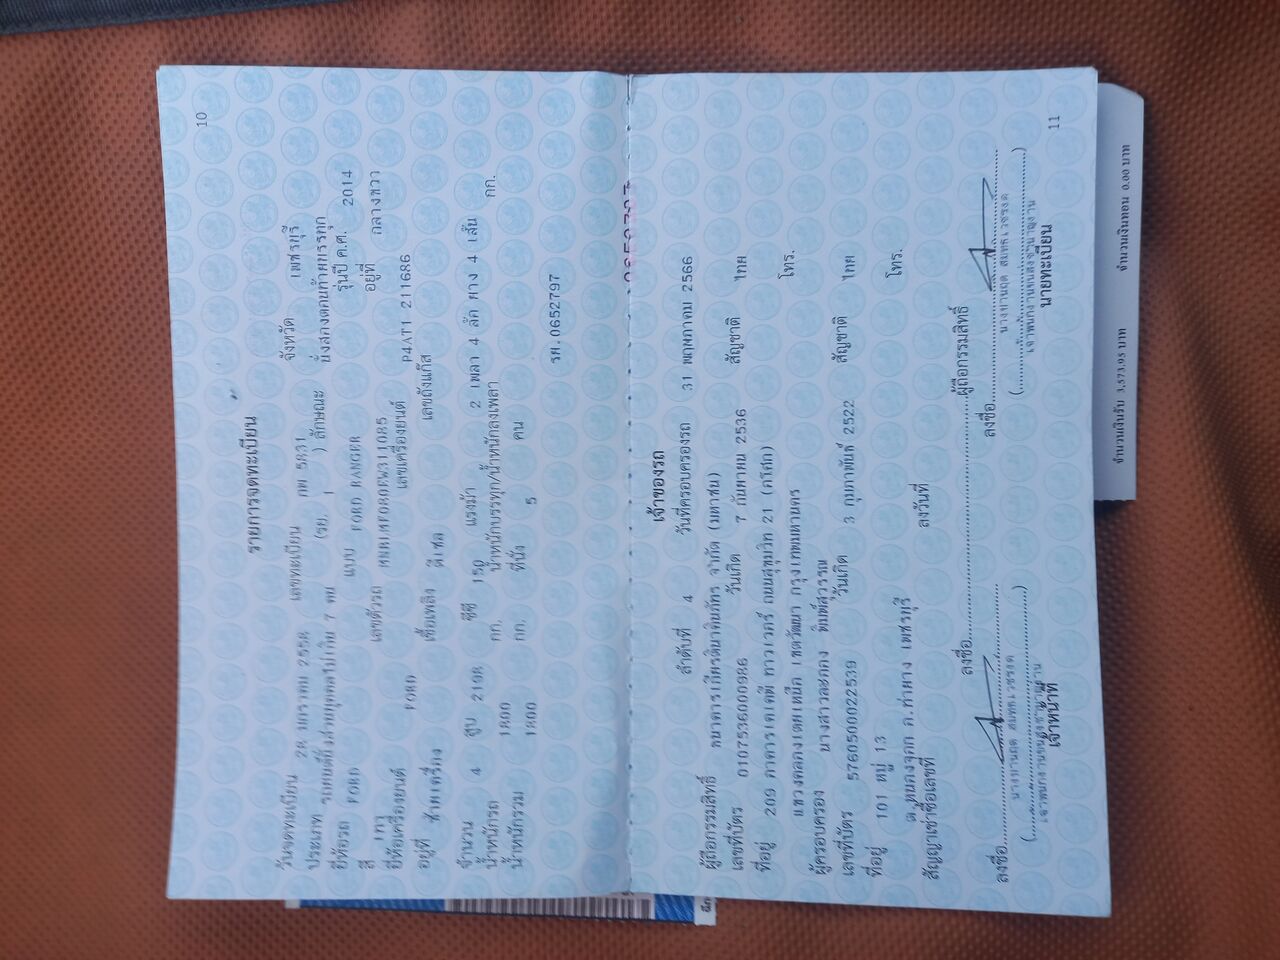 10
รายการจดทะเบียน
วันจดทะเบียน 28 มกราคม 2558 เลขทะเบียน กพ 5831 จังหวัด เพชรบุรี
ประเภท รถยนต์นั่งส่วนบุคคลไม่เกิน 7 คน (รย. 1 ) ลักษณะ นั่งสองตอนท้ายบรรทุก
ยี่ห้อรถ FORD แบบ FORD RANGER รุ่นปี ค.ศ. 2014
สี เทา เลขตัวรถ อยู่ที่ กลางขวา
ยี่ห้อเครื่องยนต์ FORD เลขเครื่องยนต์ P4AT1 211686
อยู่ที่ ซ้ายเครื่อง เชื้อเพลิง ดีเซล เลขถังแก๊ส
จำนวน 4 สูบ 2198 ซีซี 150 แรงม้า 2 เพลา 4 ล้อ ยาง 4 เส้น
น้ำหนักรถ 1800 กก. น้ำหนักบรรทุก/น้ำหนักลงเพลา กก.
น้ำหนักรวม 1800 กก. ที่นั่ง 5 คน
รผ.0652797
เจ้าของรถ
ลำดับที่ 4 วันที่ครอบครองรถ 31 พฤษภาคม 2566
ผู้ถือกรรมสิทธิ์ ธนาคารเกียรตินาคินภัทร จำกัด (มหาชน)
เลขที่บัตร 0107536000986 วันเกิด 7 กันยายน 2536 สัญชาติ ไทย
ที่อยู่ 209 อาคารเคเคพี ทาวเวอร์ ถนนสุขุมวิท 21 (อโศก) โทร.
แขวงคลองเตยเหนือ เขตวัฒนา กรุงเทพมหานคร
ผู้ครอบครอง นางสาวละออง พิมพ์สุวรรณ
เลขที่บัตร 5760500022539 วันเกิด 3 กุมภาพันธ์ 2522 สัญชาติ ไทย
ที่อยู่ 101 หมู่ 13 โทร.
ต.หนองจอก อ.ท่ายาง เพชรบุรี
สัญญาเช่าซื้อเลขที่ ลงวันที่
ลงชื่อ ผู้ถือกรรมสิทธิ์
ลงชื่อ ลงชื่อ
เจ้าหน้าที่ นายทะเบียน
11
จำนวนเงินรับ 3,573.95 บาท จำนวนเงินทอน 0.00 บาท